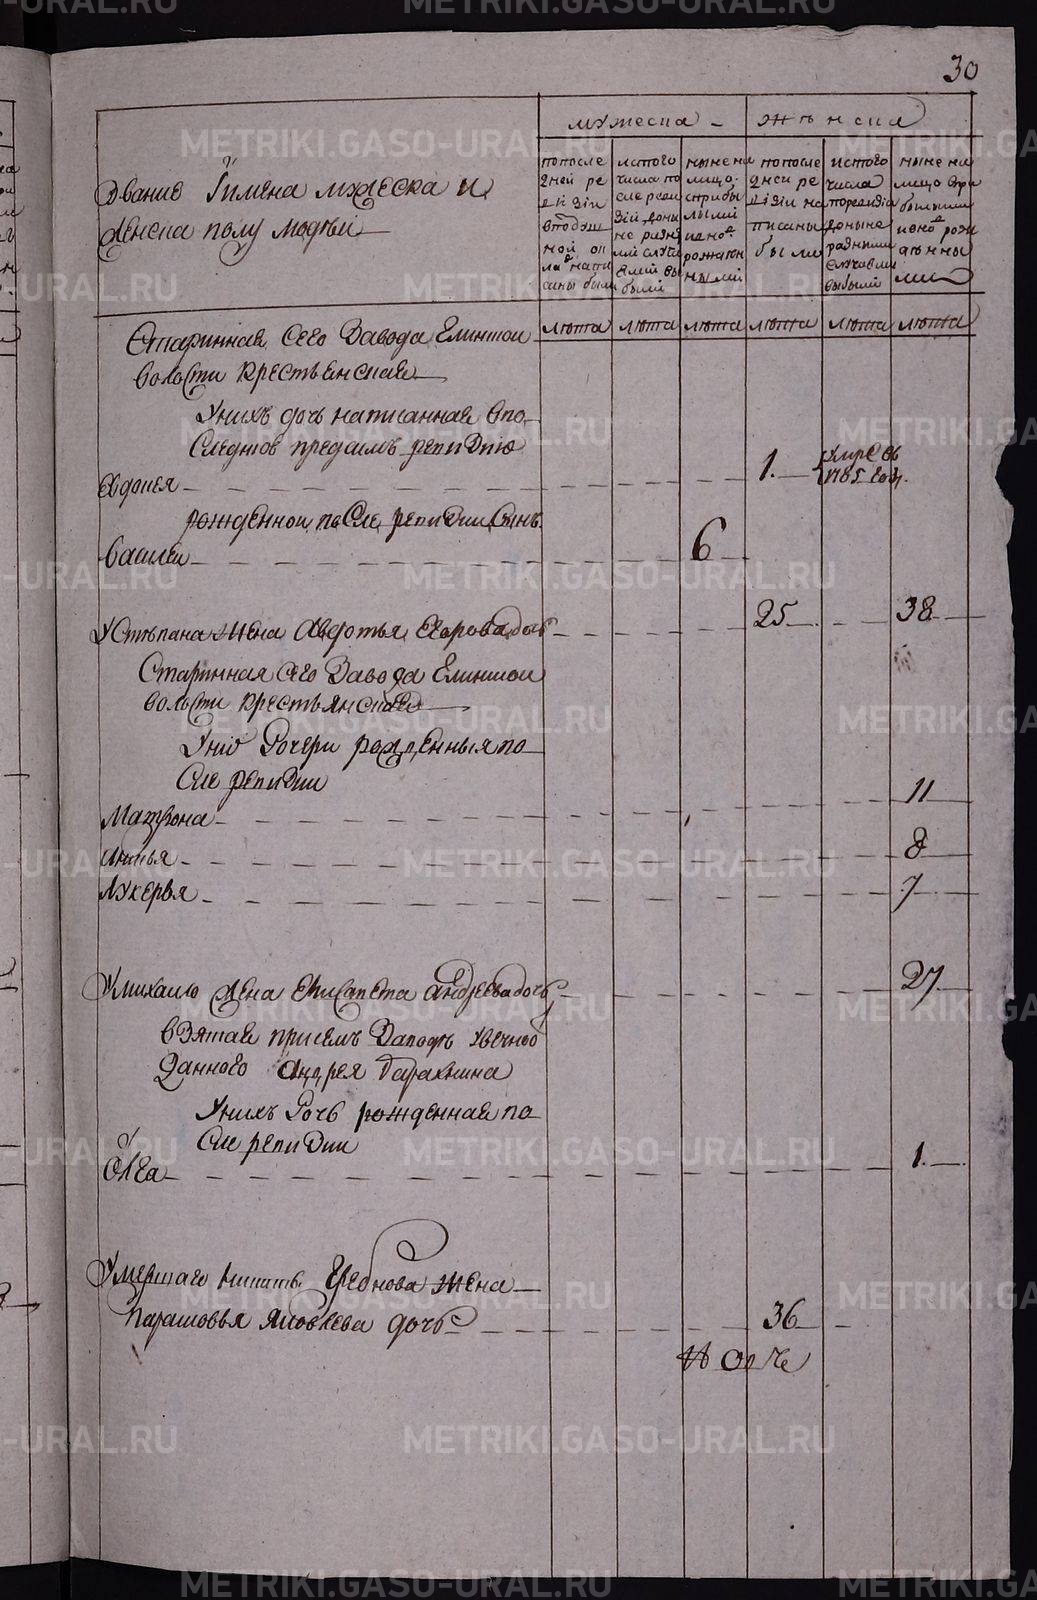 30
мужеска
женска
Звание Їимена мужеска и
женска полу людей
по после
дней ре
визїи
в подуш
ной ок
ладъ напи
саны были
ис того
числа по
сле реви
зїи доны
не разны
ми случа
ями вы
были
ныне на
лицо
с прибы
лыми
и вновь
рожден
ными
по после
дней ре
визїи на
писаны
были
ис того
числа
по ревизїи
доныне
разными
случаями
выбыли
ныне на
лицо с при
былыми
и вновь рож
денны
ми
лета
лета
лета
лета
лета
лета
Старинная сего Завода
волости крестьянская
У нихъ дочь написанная в по
следнюю пред симъ ревизию
Евдокея
1.
умре въ
1785 год.
рожденной после ревизии сынъ
Василей
6
У Степана жена Авдотья Егорова дочь
25
38
Старинная сего Завода
волости крестьянская
У ние дочери рожденныя по
сле ревизии
Матрона
11
Анна
8
Лукерья
7
У михаило жена Елисавета андреева дочь
27
взятая при семъ Заводе у вечно
данного андрея
У нихъ дочь рожденная по
сле ревизии
Олга
1.
Умершаго Гребнова жена
Парасковья Яковлева дочь
36